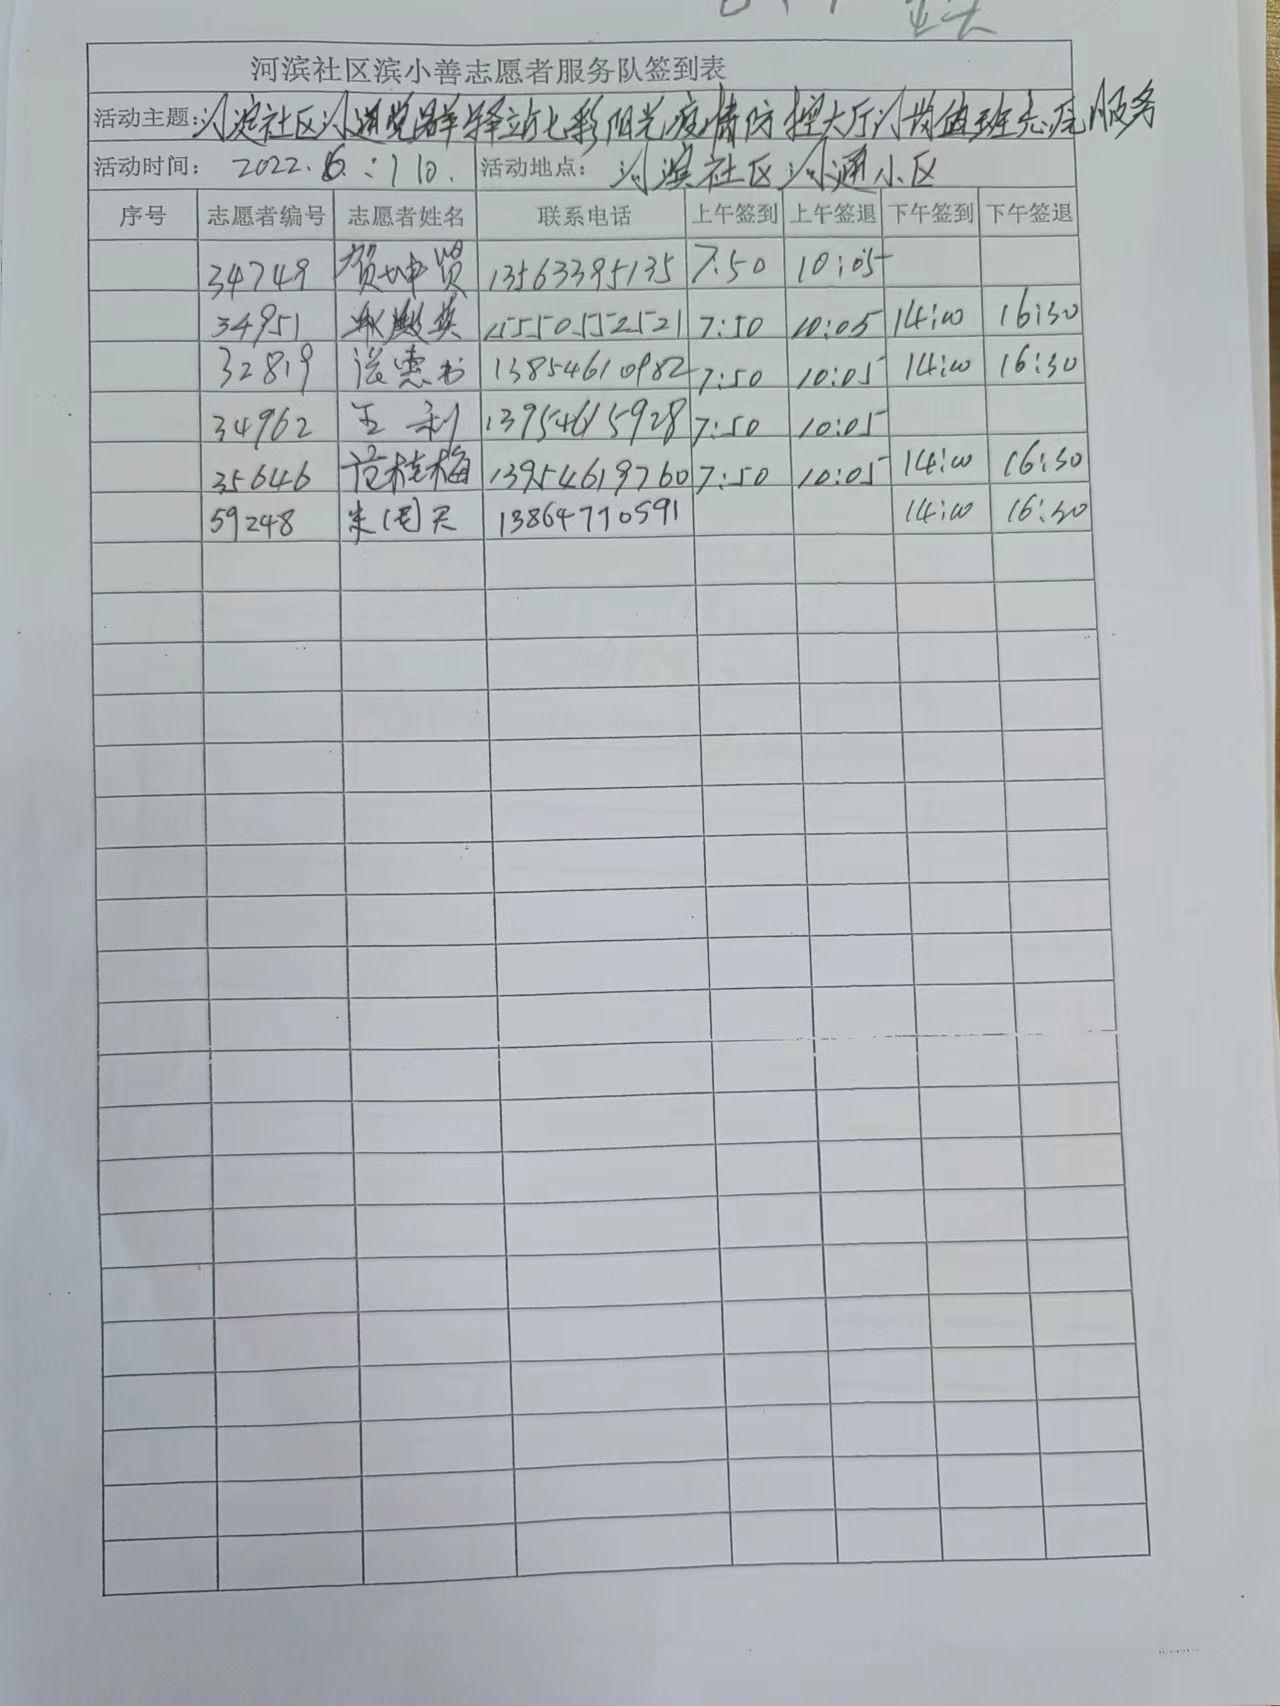 河滨社区滨小善志愿者服务队签到表
活动主题：河滨社区河通党群驿站七彩阳光疫情防控大厅门岗值班志愿服务
活动时间： 2022.6. 10. 活动地点： 河滨社区河通小区
序号 志愿者编号 志愿者姓名 联系电话 上午签到 上午签退 下午签到 下午签退
34749 贺坤贤 13563395135 7:50 10:05
34951 英 15550552521 7:50 10:05 14:00 16:30
32819 惠 13854610982 7:50 10:05 14:00 16:30
34962 王利 13954615928 7:50 10:05
35646 范桂梅 13954619760 7:50 10:05 14:00 16:30
59248 朱 13864770591 14:00 16:30